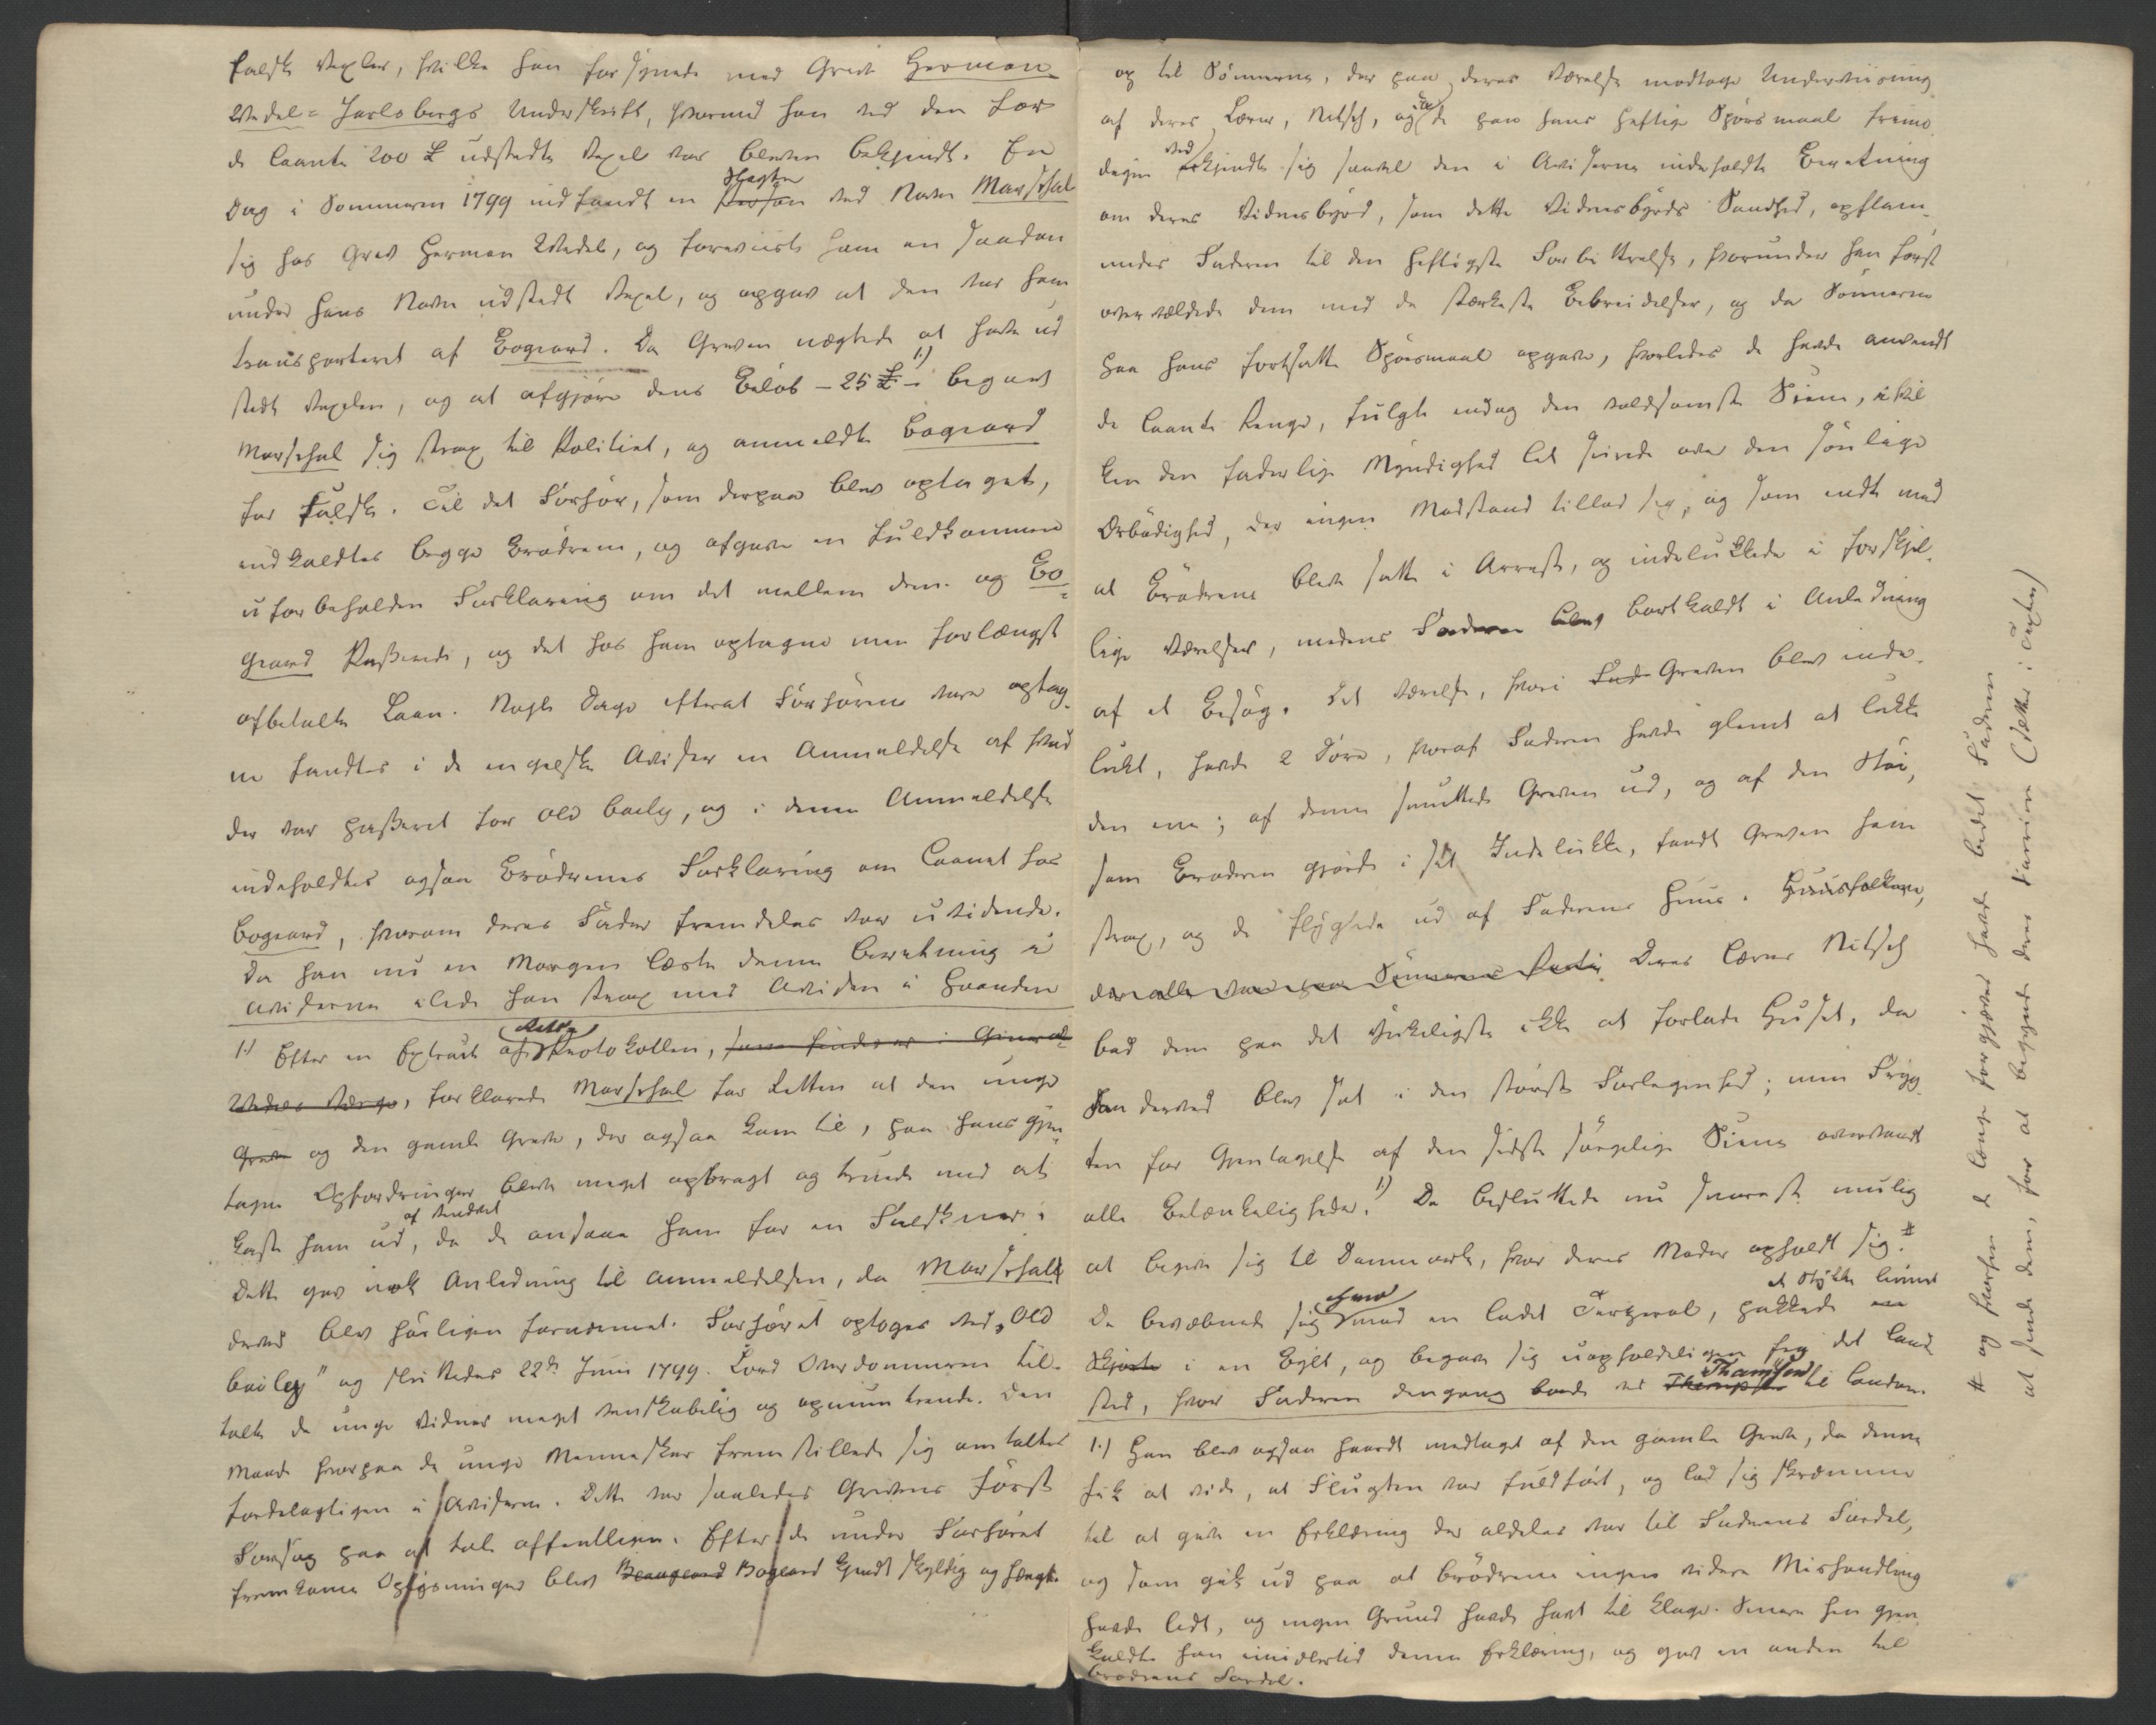 falske Vexler, hvilke han forsynede med Greve Herman
Wedel=Jarlsbergs Underskrift, hvormed han ved den for
de laante 200 £ udstedte Vexel var bleven bekjendt. En
Dag i Sommeren 1799 indfandt en Person Skagten ved Navn Marschal
sig hos Grev Herman Wedel, og foreviiste ham en saadan
under hans Navn udstedt Vexel, og opgav at den var ham
transporteret af Bogeard. Da Greven nægtede at have ud
stedt Vexelen, og at afgjøre dens Beløb – 25 £ – 1) begav
Marschal sig strax til Politiet, og anmeldte Bogeard
for Falsk. Til det Forhør, som derpaa blev optaget,
indkaldtes begge Brødrene, og afgave en fuldkommen
uforbeholden Forklaring om det mellem dem og Bo=
geard Passerede, og det hos ham optagne men forlængst
afbetalte Laan. Nogle Dage efterat Forhørene vare optag
ne fandtes i de engelske Aviser en Anmeldelse af hvad
der var passeret for Old baily, og i denne Anmeldelse
indeholdtes ogsaa Brødrenes Forklaring om Laanet hos
Bogeard, hvorom deres Fader fremdeles var uvidende.
Da han nu en Morgen læste denne Beretning i
Aviserne ilede han strax med Avisen i Haanden
1.) Efter en Extract af Retts Protokollen, som findes i General
Wedels Værge, forklarede Marschal for Retten at den unge
Greve og den gamle Greve, der ogsaa kom til, paa hans gjen
tagne Opfordringer bleve meget opbragt og truede med at
kaste ham ud af Vinduet, da de ansaae ham for en Falskner.
Dette gav nok Anledning til Anmeldelsen, da Marschall
derved blev høiligen fornærmet. Forhøret optoges ved "Old
bailey" og sluttedes 22de Juni 1799. Lord Overdommeren til=
talte de unge Vidner meget venskabelig og opmuntrende. Den
Maade hvorpaa de unge Mennesker fremstillede sig omtaltes
fordelagtigen i Aviserne. Dette var saaledes Grevens først
Forsøg paa at tale offentligen. Efter de under Forhøret
fremkomne Oplysninger blev Beaugeard Bogeard kjendt skyldig og hængt.
op til Sønnerne, der paa deres Værelse modtoge Underviisning
af deres Lærer, Nitsch, og da de paa hans heftige Spørsmaal frimo
digen erkjendte ved sig saavel den i Aviserne indeholdte Beretning
om deres Vidnesbyrd, som dette Vidnesbyrds Sandhed, opflam
medes Faderen til den heftigste Forbittrelse, hvorunder han først
overvældede dem med de stærkeste Bebreidelser, og da Sønnerne
paa hans fortsatte Spørsmaal opgave, hvorledes de havde anvendt
de laante Penge, fulgte endog den voldsomste Scene, i hvil
ken den faderlige Myndighed lod sin Vrede over den sønlige
Ærbødighed, der ingen Modstand tillod sig, og som endte med
at Brødrene bleve satte i Arrest, og indelukkede i forskjel
lige Værelser, medens Faderen blev bortkaldt i Anledning
af et Besøg. Det Værelse, hvori Fade Greven blev inde=
lukt, havde 2 Døre, hvoraf Faderen havde glemt at lukke
den ene; af denne smuttede Greven ud, og af den Støi,
som Broderen gjorde i sit Indelukke, fandt Greven ham
strax, og de flygtede ud af Faderens Huus. Huusfolkene,
der alle vare paa Sønnernes Parti Deres Lærer Nitsch
bad dem paa det Ynkeligste ikke at forlade Huset, da
han derved blev sat i den største Forlegenhed; men Fryg
ten for Gjentagelse af den sidste sørgelige Scene overvandt
alle Betænkeligheder. 1) De besluttede nu snarest mulig
at begive sig til Danmark, hvor deres Moder opholdt sig. #
De bevæbnede sig hver med en ladt Terzerol, pakkede en et Stykke linned
Skjorte i en Bylt, og begave sig uopholdeligen fra det Land
sted, hvor Faderen dengang boede ved Themps Thamsen til London.
1.) Han blev ogsaa haardt medtaget af den gamle Greve, da denne
fik at vide, at Flugten var fuldført, og lod sig skræmme
til at give en Erklæring der aldeles var til Faderens Fordel,
og som gik ud paa at Brødrene ingen videre Mishandling
havde lidt, og ingen Grund havde havt til Klage. Senere hen gjen
kaldte han imidlertid denne Erklæring, og gav en anden til
Brødrenes Fordel.
# og hvorhen de længe forgjæves havde bedet Faderen
at sende dem, for at begynde deres Carriere (dette i Texten)